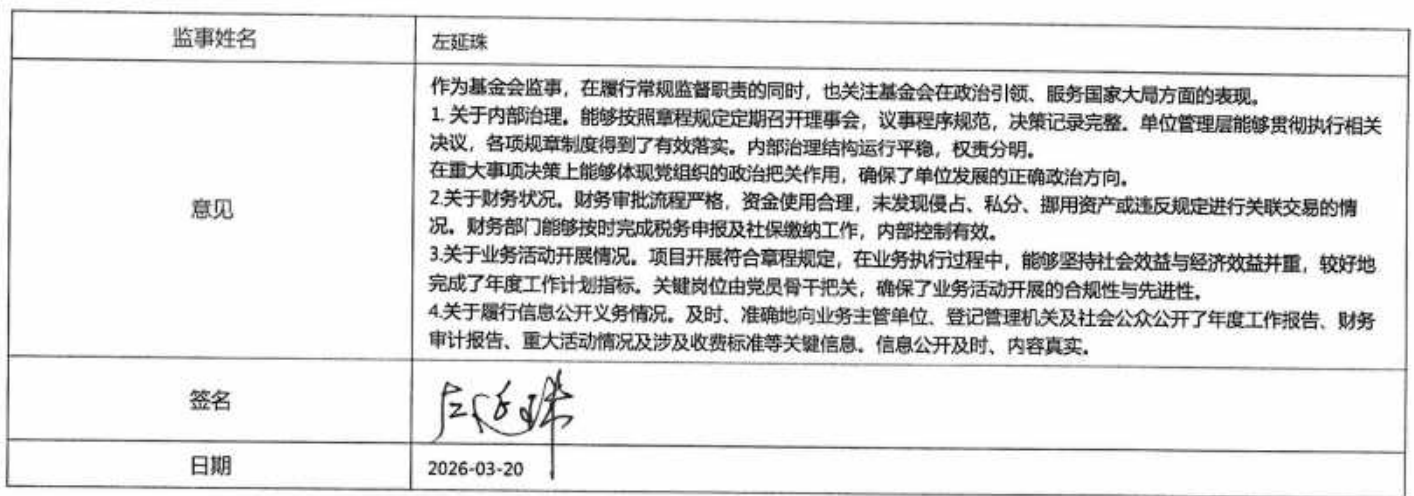 监事姓名
左延珠
意见
作为基金会监事，在履行常规监督职责的同时，也关注基金会在政治引领、服务国家大局方面的表现。
1. 关于内部治理。能够按照章程规定定期召开理事会，议事程序规范，决策记录完整。单位管理层能够贯彻执行相关
决议，各项规章制度得到了有效落实。内部治理结构运行平稳，权责分明。
在重大事项决策上能够体现党组织的政治把关作用，确保了单位发展的正确政治方向。
2.关于财务状况。财务审批流程严格，资金使用合理，未发现侵占、私分、挪用资产或违反规定进行关联交易的情
况。财务部门能够按时完成税务申报及社保缴纳工作，内部控制有效。
3.关于业务活动开展情况。项目开展符合章程规定，在业务执行过程中，能够坚持社会效益与经济效益并重，较好地
完成了年度工作计划指标。关键岗位由党员骨干把关，确保了业务活动开展的合规性与先进性。
4.关于履行信息公开义务情况。及时、准确地向业务主管单位、登记管理机关及社会公众公开了年度工作报告、财务
审计报告、重大活动情况及涉及收费标准等关键信息。信息公开及时、内容真实。
签名
左延珠
日期
2026-03-20